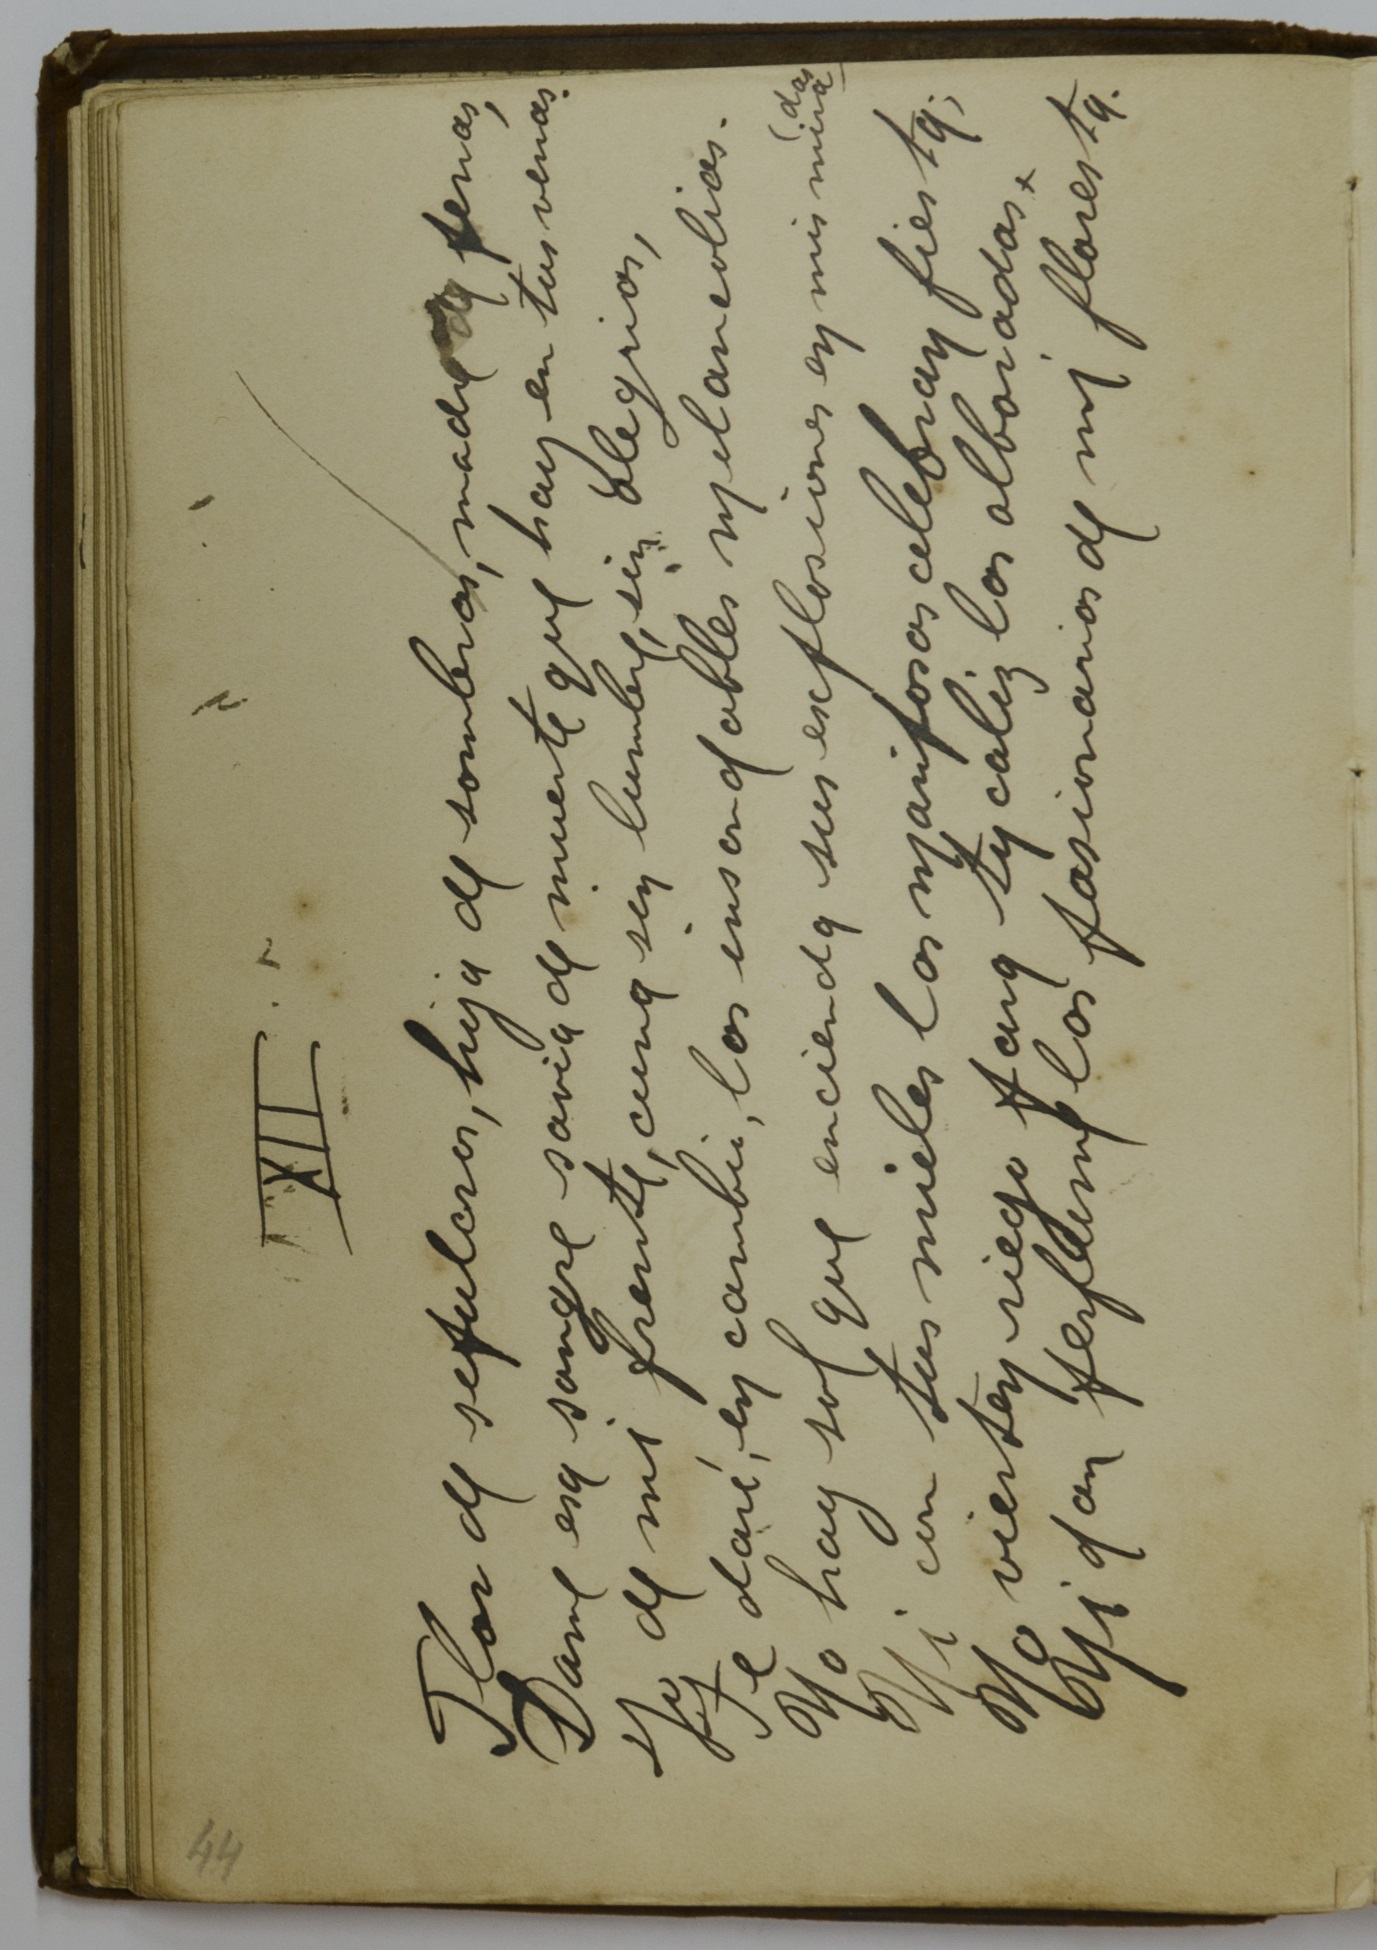 44
XII
Flor de sepulcros, hija de sombras, madre de penas,
Dame esa sangre savia de muerte que hay en tus venas.
Y yo de mi frente, cuna sin lumbre, sin alegrias,
Te daré, en cambio, las insondables melancolias.
No hay sol que encienda sus explosiones en mis mira-
(das
Ni con tus mieles las mariposas celebran fiesta;
No vierten riego para tu caliz las alboradas
Ni dan perfume las pasionarias de mi floresta.